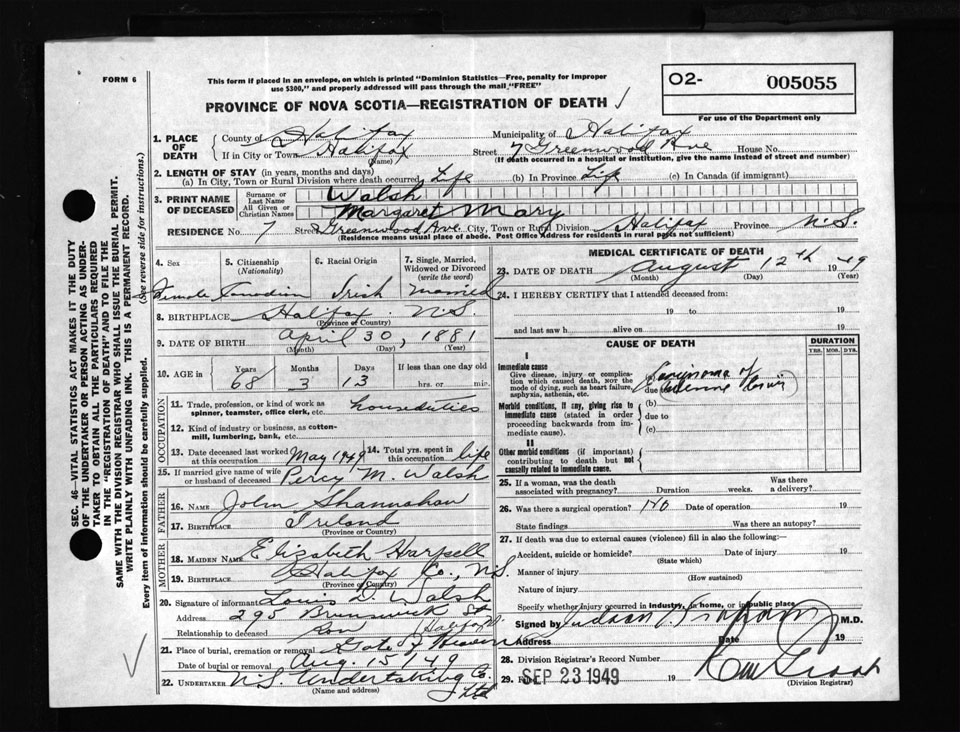 FORM 6
This form if placed in an envelope, on which is printed "Dominion Statistics—Free, penalty for improper
use $300," and properly addressed will pass through the mail "FREE"
PROVINCE OF NOVA SCOTIA—REGISTRATION OF DEATH
O2- 005055
For use of the Department only
SEC. 46—VITAL STATISTICS ACT MAKES IT THE DUTY
OF THE UNDERTAKER OR PERSON ACTING AS UNDER-
TAKER TO OBTAIN ALL THE PARTICULARS REQUIRED
IN THE "REGISTRATION OF DEATH" AND TO FILE THE
SAME WITH THE DIVISION REGISTRAR WHO SHALL ISSUE THE BURIAL PERMIT.
WRITE PLAINLY WITH UNFADING INK. THIS IS A PERMANENT RECORD.
Every item of information should be carefully supplied. (See reverse side for instructions.)
1. PLACE OF DEATH
County of Halifax Municipality of Halifax
If in City or Town Halifax (Name) Street 7 Greenwood Ave House No.
(If death occurred in a hospital or institution, give the name instead of street and number)
2. LENGTH OF STAY (in years, months and days)
(a) In City, Town or Rural Division where death occurred Life (b) In Province Life (c) In Canada (if immigrant)
3. PRINT NAME OF DECEASED
Surname or Last Name Walsh
All Given or Christian Names Margaret Mary
RESIDENCE No. 7 Street Greenwood Ave. City, Town or Rural Division Halifax Province N.S.
(Residence means usual place of abode. Post Office Address for residents in rural parts not sufficient)
4. Sex 5. Citizenship (Nationality) 6. Racial Origin 7. Single, Married, Widowed or Divorced (write the word)
Female Canadian Irish Married
8. BIRTHPLACE Halifax N.S.
(Province or Country)
9. DATE OF BIRTH April 30, 1881
(Month) (Day) (Year)
10. AGE in Years Months Days If less than one day old
68 3 13 hrs. or min.
OCCUPATION
11. Trade, profession, or kind of work as spinner, teamster, office clerk, etc. houseduties
12. Kind of industry or business, as cotton-mill, lumbering, bank, etc.
13. Date deceased last worked at this occupation May 1949 14. Total yrs. spent in this occupation life
15. If married give name of wife or husband of deceased Percy M. Walsh
FATHER
16. NAME John Shannahan
17. BIRTHPLACE Ireland
(Province or Country)
MOTHER
18. MAIDEN NAME Elizabeth Harpell
19. BIRTHPLACE Halifax Co., N.S.
(Province or Country)
20. Signature of informant Louis D. Walsh
Address 295 Brunswick St Halifax
Relationship to deceased Son
21. Place of burial, cremation or removal Gate of Heaven
Date of burial or removal Aug. 15/49
22. UNDERTAKER N.S. Undertaking Co. Ltd
(Name and address)
MEDICAL CERTIFICATE OF DEATH
23. DATE OF DEATH August 12th 1949
(Month) (Day) (Year)
24. I HEREBY CERTIFY that I attended deceased from:
19 to 19
and last saw h alive on 19
CAUSE OF DEATH DURATION
YRS. MOS. DYS.
I
Immediate cause
Give disease, injury or complication which caused death, NOT the mode of dying, such as heart failure, asphyxia, asthenia, etc. due to of
Morbid conditions, if any, giving rise to immediate cause (stated in order proceeding backwards from immediate cause).
(b)
due to
(c)
II
Other morbid conditions (if important) contributing to death but not causally related to immediate cause.
25. If a woman, was the death associated with pregnancy? Duration weeks. Was there a delivery?
26. Was there a surgical operation? No Date of operation 19
State findings Was there an autopsy?
27. If death was due to external causes (violence) fill in also the following:—
Accident, suicide or homicide? Date of injury 19
(State which)
Manner of injury
(How sustained)
Nature of injury
Specify whether injury occurred in industry, in home, or in public place
Signed by M.D.
Address Date 19
28. Division Registrar's Record Number
29. SEP 23 1949 19
(Division Registrar)